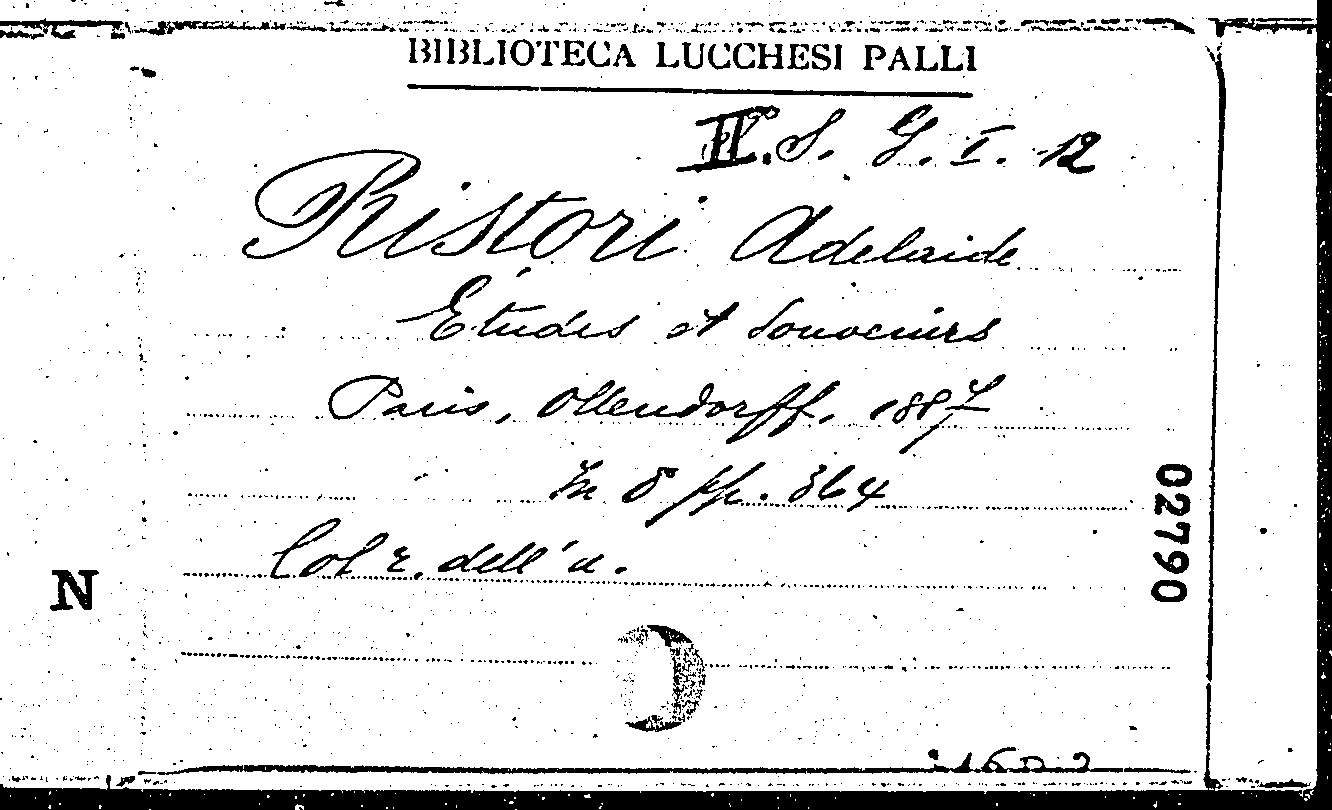 BIBLIOTECA LUCCHESI PALLI
II. S. G. I. 12
Ristori Adelaide
Études et Souvenirs
Paris, Ollendorff, 1887
In 8° pp. 364
Col r. dell'a.
N
02790